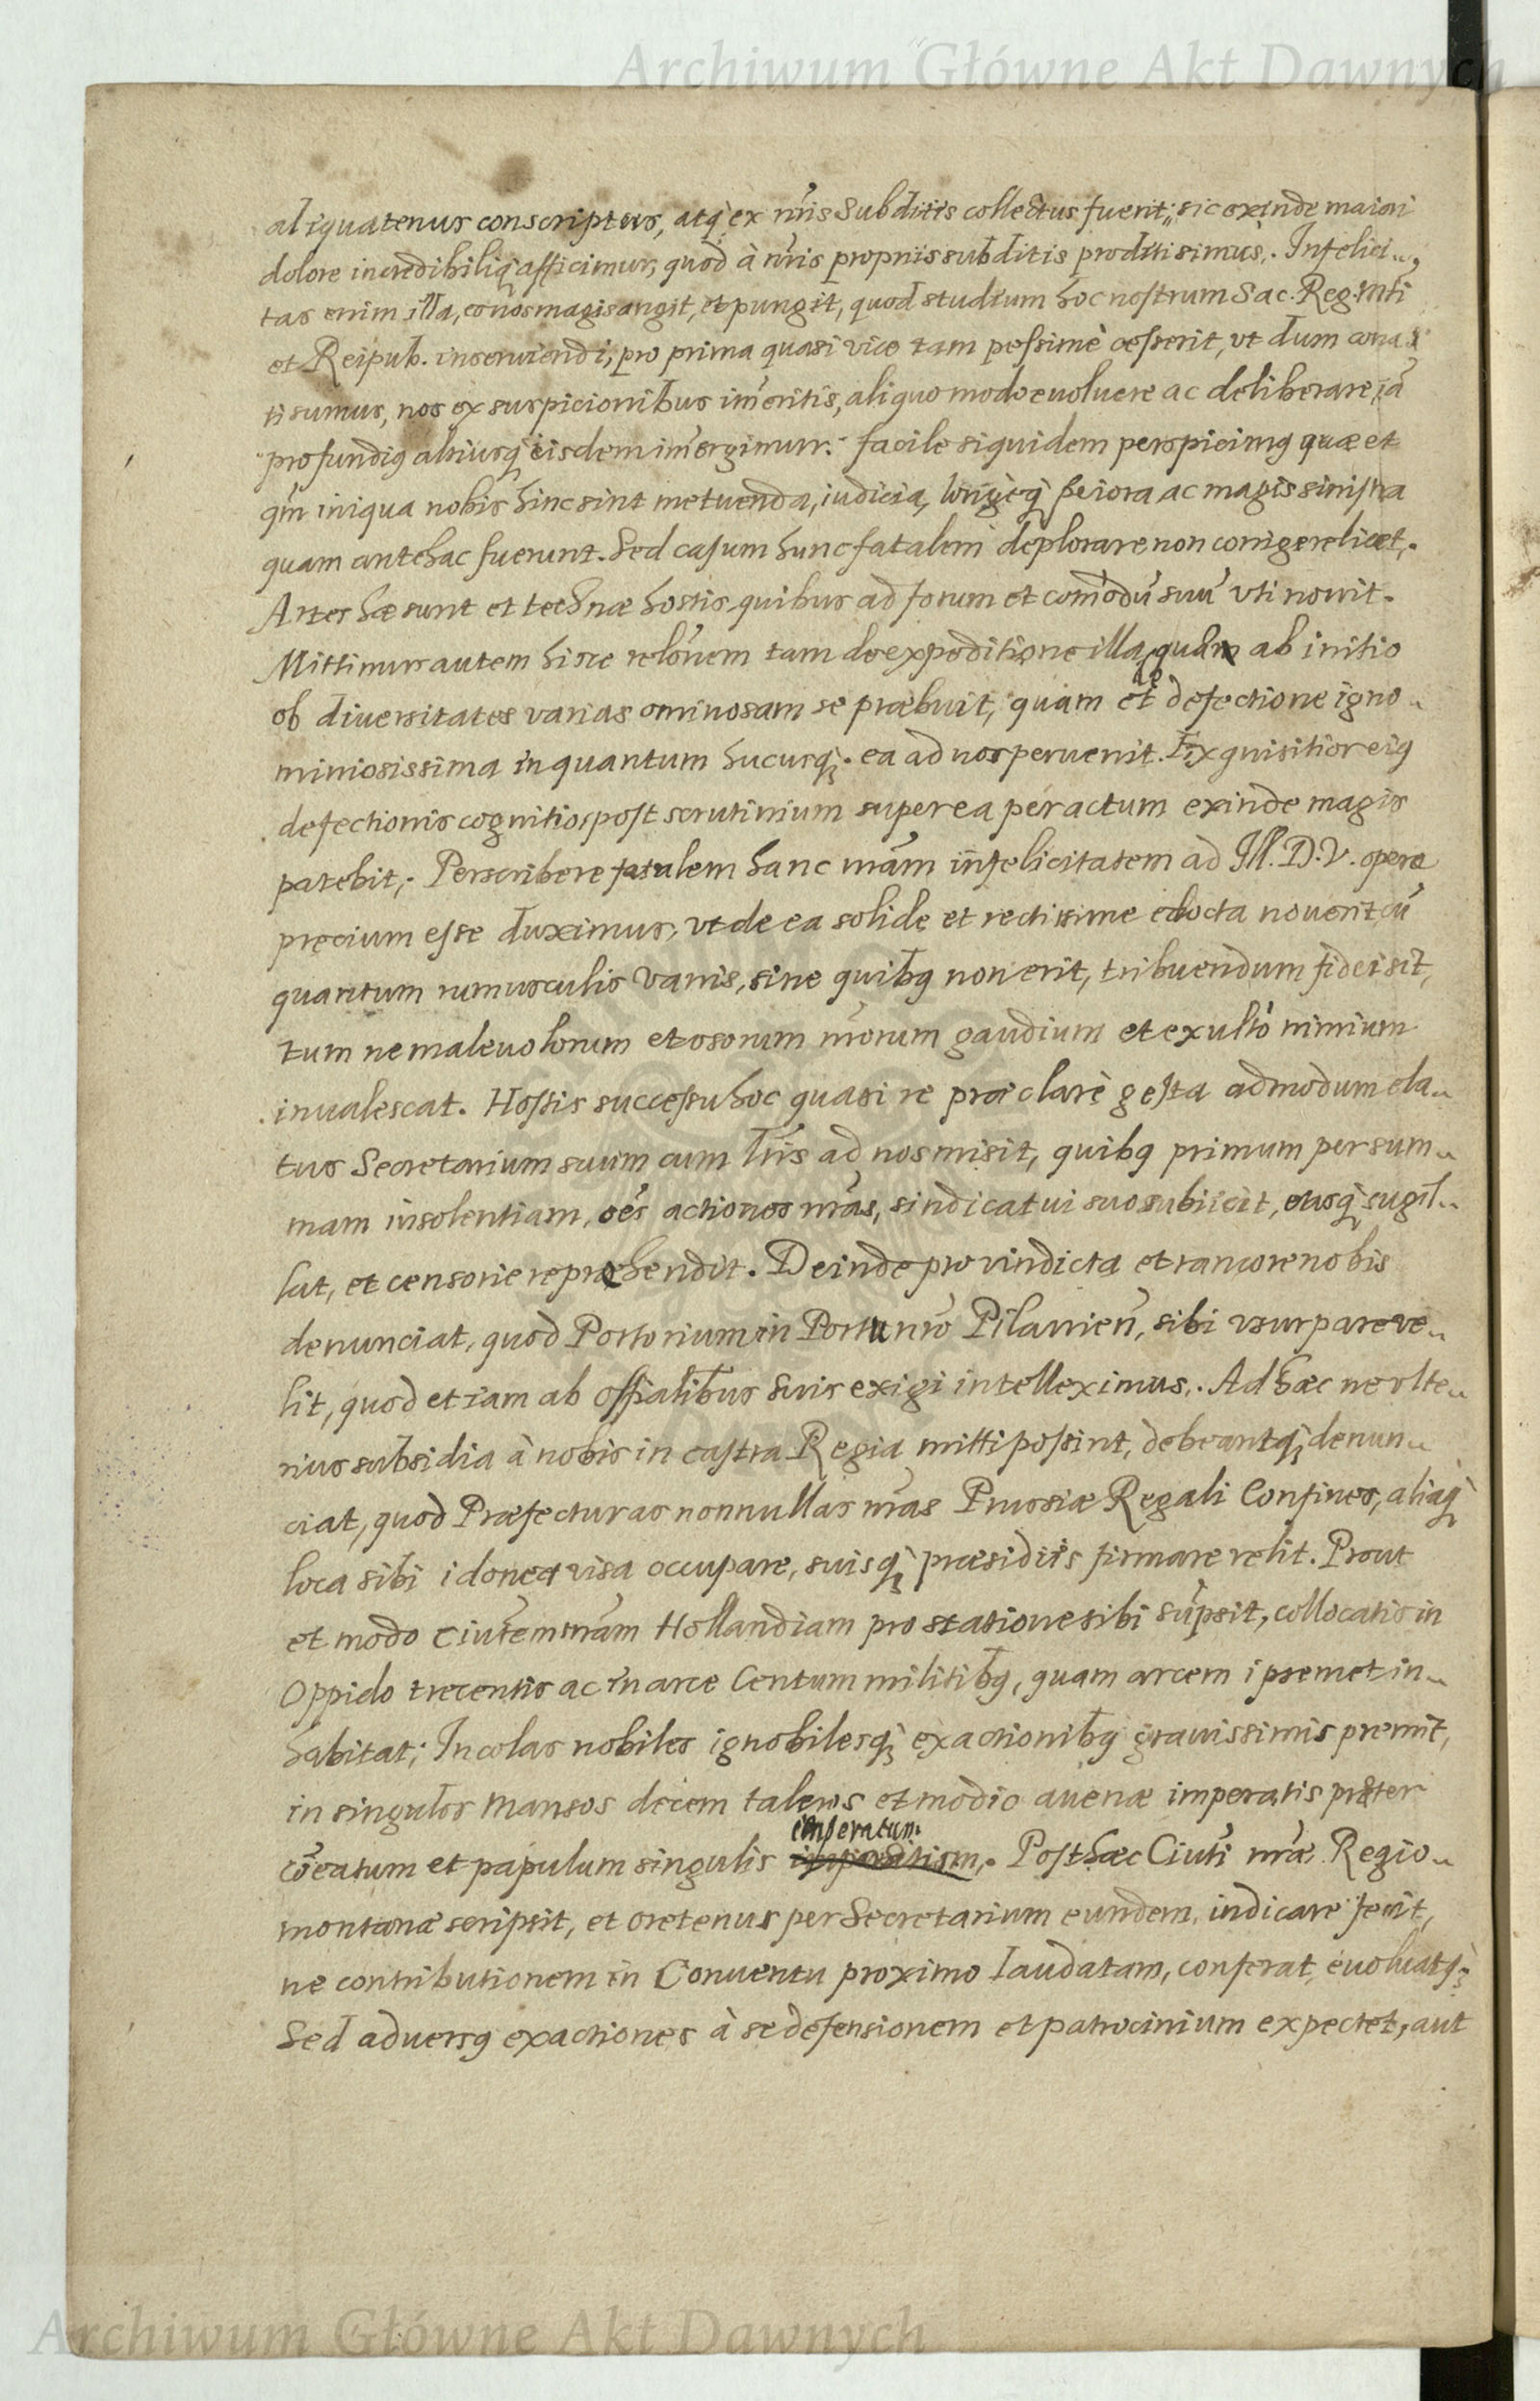 Archiwum Główne Akt Dawnych
aliquatenus conscriptus, atq́ ex nr̃is Subditis collectus fuerit; sic exinde maiori
dolore incredibiliq́ afficimur, quod à nr̃is proprijs subditis proditi simus. Infelici-
tas enim illa, eo nos magis angit, et pungit, quod studium hoc nostrum Sac. Reg. Mti
et Reipub. inseruiendi, pro prima quasi vice tam pessimè cesserit, vt dum cona
ti sumus, nos ex suspicionibus im̃eritis, aliquo modo euoluere ac deliberare, iã
profundiq altiusq́ eisdem im̃ergimur: facile siquidem perspicimq quæ et
qm̃ iniqua nobis hinc sint metuenda, iudicia, longeq́ peiora ac magis sinistra
quam antehac fuerunt. Sed casum hunc fatalem deplorare non corrigere licet.
Artes hæ sunt et technæ hostis, quibus ad forum et com̃odũ suũ vti nouit.
Mittimus autem hisce relõnem tam de expeditione illa, quæ ab initio
ob diuersitates varias ominosam se præbuit, quam et de defectione igno-
miniosissima in quantum hucusq́. ea ad nos peruenit. Exquisitior eiq
defectionis cognitio, post scrutinium super ea peractum exinde magis
patebit; Perscribere fatalem hanc nr̃am infelicitatem ad Ill. D. V. operæ
precium esse duximus, vt de ea solide et rectissime edocta nouerit cũ
quantum rumusculis varijs, sine quibq non erit, tribuendum fidei sit,
tum ne maleuolorum et osorum nr̃orum gaudium et exultõ nimium
inualescat. Hostis successu hoc quasi re præclarè gesta admodum ela-
tus Secretarium suum cum lr̃is ad nos misit, quibq primum per sum-
mam insolentiam, oẽs actiones nr̃as, sindicatui suo subiicit, easq́ sugil-
lat, et censorie repræhendit. Deinde pro vindicta et rancore nobis
denunciat, quod Portorium in Portu nr̃o Pilauien̄, sibi vsurpare ve-
lit, quod etiam ab offialibus suis exigi intelleximus. Ad hæc ne vlte-
rius subsidia à nobis in castra Regia mitti possint, debeantq́, denun-
ciat, quod Præfecturas nonnullas nr̃as Prussiæ Regali Confines, aliaq́
loca sibi idonea visa occupare, suisq́ præsidiis firmare velit. Prout
et modo Ciuitem nr̃am Hollandiam pro statione sibi sũpsit, collocatis in
Oppido trecentis ac in arce Centum militibq, quam arcem ipsemet in-
habitat; Incolas nobiles ignobilesq́ exactionibq grauissimis premit,
in singulos mansos decem taleros et modio auenæ imperatis præter
cõeatum et papulum singulis imperatum. Post hæc Ciuti nr̃æ Regio-
montanæ scripsit, et oretenus per Secretarium eundem, indicare fecit,
ne contributionem in Conuentu proximo laudatam, conferat, euoluatq́;
Sed aduersq exactiones à se defensionem et patrocinium expectet, aut
Archiwum Główne Akt Dawnych